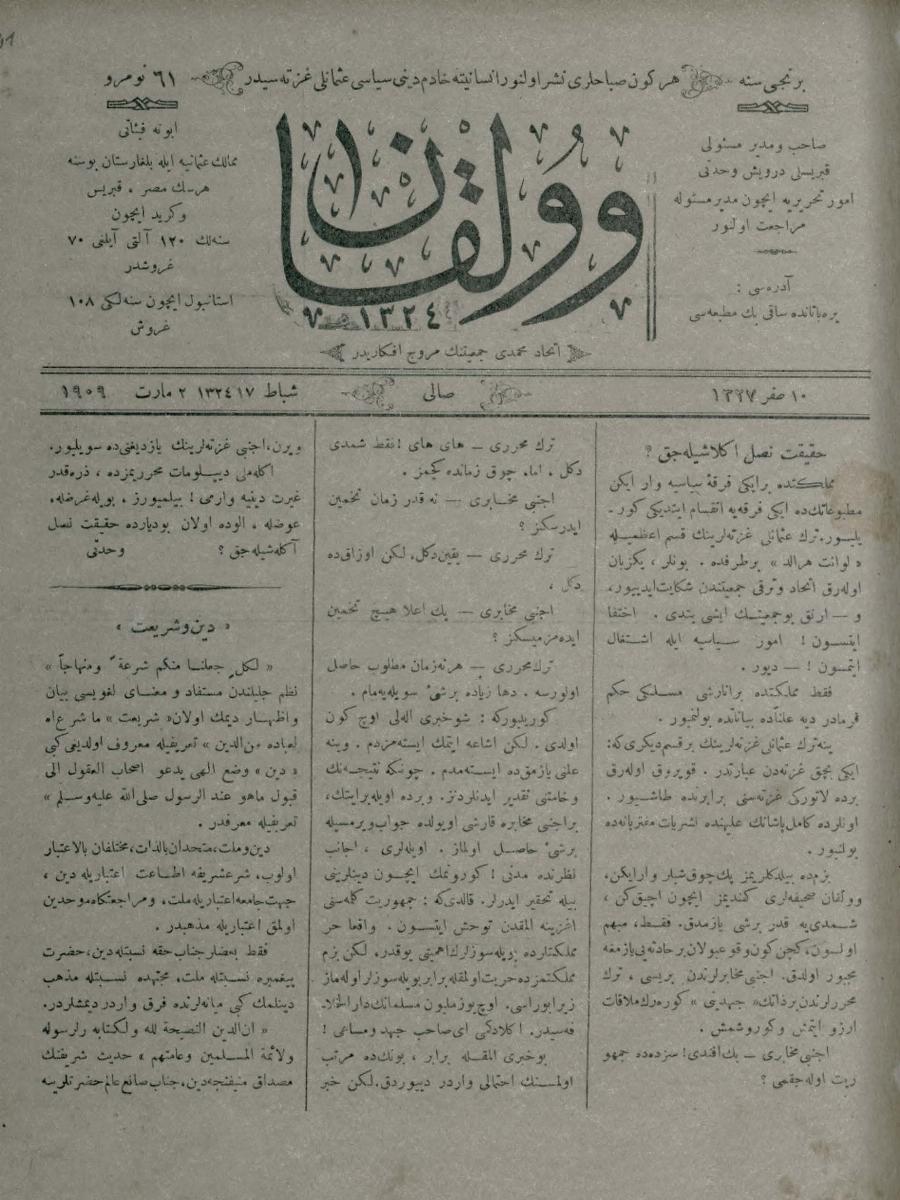 برنجی سنه
هر كون صباحلری نشر اولنور انسانیته خادم دینی سیاسی عثمانلی غزته سیدر
٦١ نومرو
صاحب ومدیر مسئولی
قبریسلی درویش وحدتی
امور تحریریه ایچون مدیر مسئوله
مراجعت اولنور
آدره سی :
یره باتانده ساقی بك مطبعه سی
وولقان
١٣٢٤
ابونه فیئاتی
ممالك عثمانیه ایله بلغارستان بوسنه
هرسك مصر ، قبریس
وكرید ایچون
سنه لك ١٢٠ آلتی آیلغی ٧٠
غروشدر
استانبول ایچون سنه لكی ١٠٨
غروش
اتحاد محمدی جمعیتنك مروج افكاریدر
١٠ صفر ١٣٢٧
صالی
شباط ١٧ ١٣٢٤ ٢ مارت ١٩٠٩
حقیقت نصل اكلاشیله جق ؟
مملكتده برایكی فرقۀ سیاسیه وار ایكن
مطبوعاتك ده ایكی فرقه یه انقسام ایتدیكی كور ـ
یلیور. ترك عثمانلی غزته لرینك قسم اعظمیله
« لوانت هرالد » برطرفده . بونلر ، یكزبان
اوله رق اتحاد وترقی جمعیتندن شكایت ایدییور،
و — ارتق بوجمعیتك ایشی بتدی . اختفا
ایتسون ! امور سیاسیه ایله اشتغال
ایتمسون ! — دیور .
فقط مملكتده برانارشی مسلكی حكم
فرمادر دیه علناً ده بیاناتده بولنمیور .
ینه ترك عثمانلی غزته لرینك برقسم دیكری كه:
ایكی بچق غزته دن عبارتدر . قویروق اوله رق
برده لاتوركی غزته سنی برابرنده طاشییور .
اونلرده كامل پاشانك علیهنده نشریات مفتریانه ده
بولنیور .
بزم ده بیلدكلریمز پك چوق شیلر وارایكن،
وولقان صحیفه لری كندیمز ایچون آچیق كن ،
شمدی یه قدر برشی یازمدق. فقط، مبهم
اولسون، كچن كون وقوعبولان برحادثه یی یازمغه
مجبور اولدق. اجنبی مخابرلرندن بریسی ، ترك
محررلرندن برذاتك» جهدینی « كوره رك ملاقات
آرزو ایتمش وكوروشمش .
اجنبی مخابری — بك افندی! سزده ده جمهو
ریت اوله جقمی ؟
ترك محرری — های های ! فقط شمدی
دكل . اما، چوق زمانده كچمز .
اجنبی مخابری — نه قدر زمان تخمین
ایدرسكز ؟
ترك محرری — یقین دكل، لكن اوزاق ده
دكل ،
اجنبی مخابری — پك اعلا هیچ تخمین
ایده مزمیسكز ؟
ترك محرری — هر نه زمان مطلوب حاصل
اولورسه . دها زیاده برشی سویله یه مام .
كوریلیوركه : شوخبری اله لی اوچ كون
اولدی . لكن اشاعه ایتمك ایسته مزدم . وینه
علنی یازمق ده ایسته مدم . چونكه نتیجه نك
وخامتنی تقدیر ایدنلردنز. وبرده اویله برایتك،
براجنبی مخابره قارشی اویولده جواب ویرمسیله
برشی حاصل اولماز . اویله لری ، اجانب
نظرنده مدنی ! كورونمك ایچون دینلرینی
بیله تحقیر ایدرلر. قالدی كه : جمهوریت كلمه سنی
اغزینه المقدن توحش ایتسون . واقعا حر
مملكتلرده بویله سوزلرك اهمیتی یوقدر. لكن بزم
مملكتمزده حریت اولمقله برابر بویله سوزلر اوله ماز
زیرا بوراسی. اوچ یوز ملیون مسلمانك دار الخلا
فه سیدر. اكلادكمی ای صاحب جهد ومساعی !
بوخبری المقله برابر ، بونك ده مرتب
اولمسنك احتمالی واردر دییوردق. لكن خبر
ویرن، اجنبی غزته لرینك یازدیغنی ده سویلیور.
اكله ملی دیپلومات محرریمزده ، ذره قدر
غیرت دینیه وارمی ! بیلمیورز . بویله غرضله،
عوضله ، الوده اولان بودیارده حقیقت نصل
آكله شیله جق ؟ وحدتی
« دین وشریعت »
« لكل جعلنا منكم شرعة ومنهاجاً »
نظم جلیلندن مستفاد و معنای لغویسی بیان
واظهار دیمك اولان « شریعت » ما شرع اه
لعباده من الدین » تعریفیله معروف اولدیغی كی
« دین » وضع الهی یدعو اصحاب العقول الی
قبول ماهو عند الرسول صلی الله علیه وسلم »
تعریفیله معرفدر .
دین وملت، متحدان بالذات، مختلفان بالاعتبار
اولوب، شرع شریفه اطاعت اعتباریله دین ،
جهت جامعه اعتباریله ملت، ومراجعتكاه موحدین
اولمق اعتباریله مذهبدر .
فقط بعضلر جناب حقه نسبتله دین، حضرت
پیغمبره نسبتله ملت، مجتهده نسبتله مذهب
دینلمك كبی میانه لرنده فرق واردر دیمشلردر.
« ان الدین النصیحة لله ولكتابه ولرسوله
ولائمة المسلمین وعامتهم » حدیث شریفنك
مصداق منیفنجه دین، جناب صانع عالم حضرتلرینه